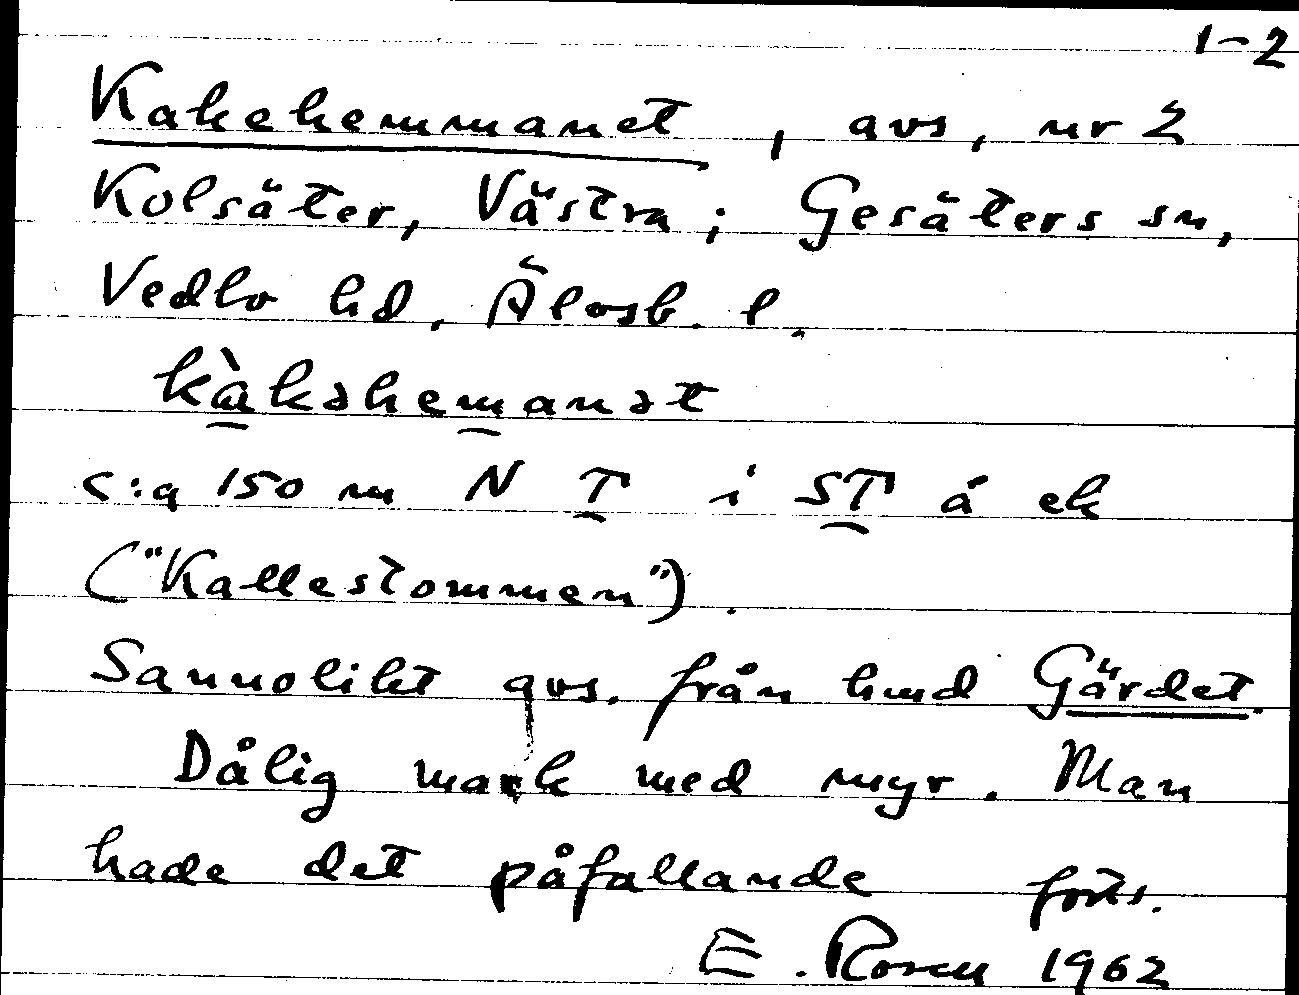 1-2
Kakehemmanet, avs, nr 2
Kolsäter, Västra; Gesäters sn,
Vedbo hd, Älvsb. l.
kàkəhemanət
c:a 150 m N T i ST å ek
("Kallestommen").
Sannolikt avs. från hmd Gärdet.
Dålig mark med myr. Man
hade det påfallande forts.
E. Rosén 1962